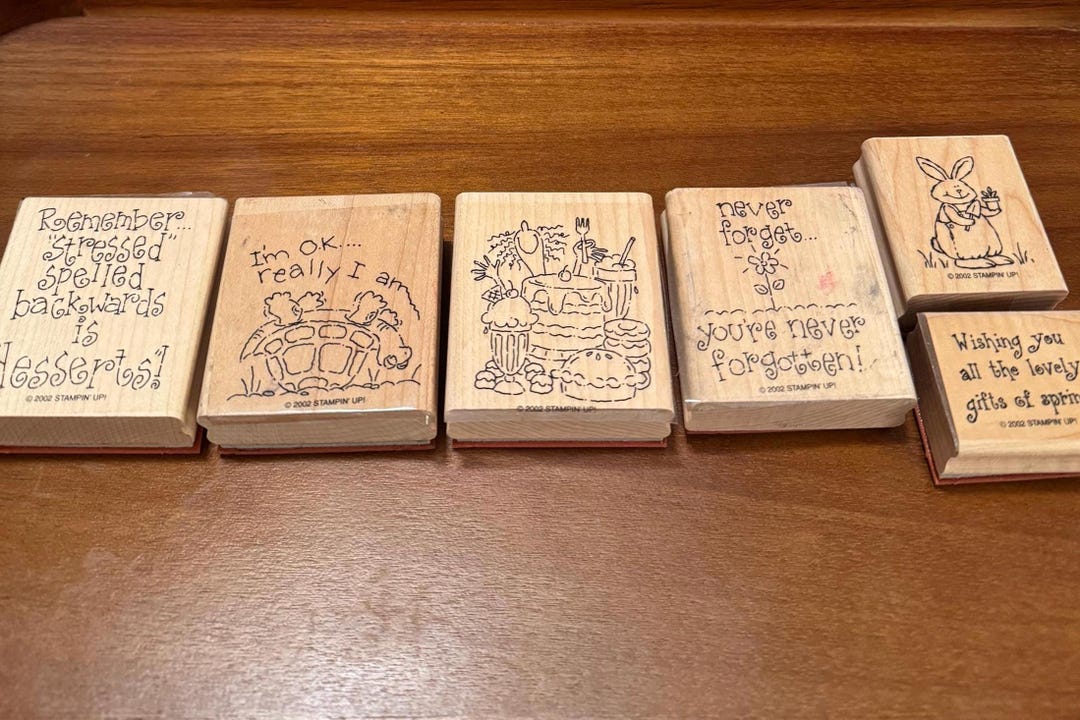 Remember...
"Stressed"
spelled
backwards
is
desserts"!
© 2002 STAMPIN' UP!
I'm O.K....
really I am
© 2002 STAMPIN' UP!
© 2002 STAMPIN' UP!
never
forget...
you're never
forgotten!
© 2002 STAMPIN' UP!
© 2002 STAMPIN' UP!
Wishing you
all the lovely
gifts of
© 2002 STAMPIN' UP!